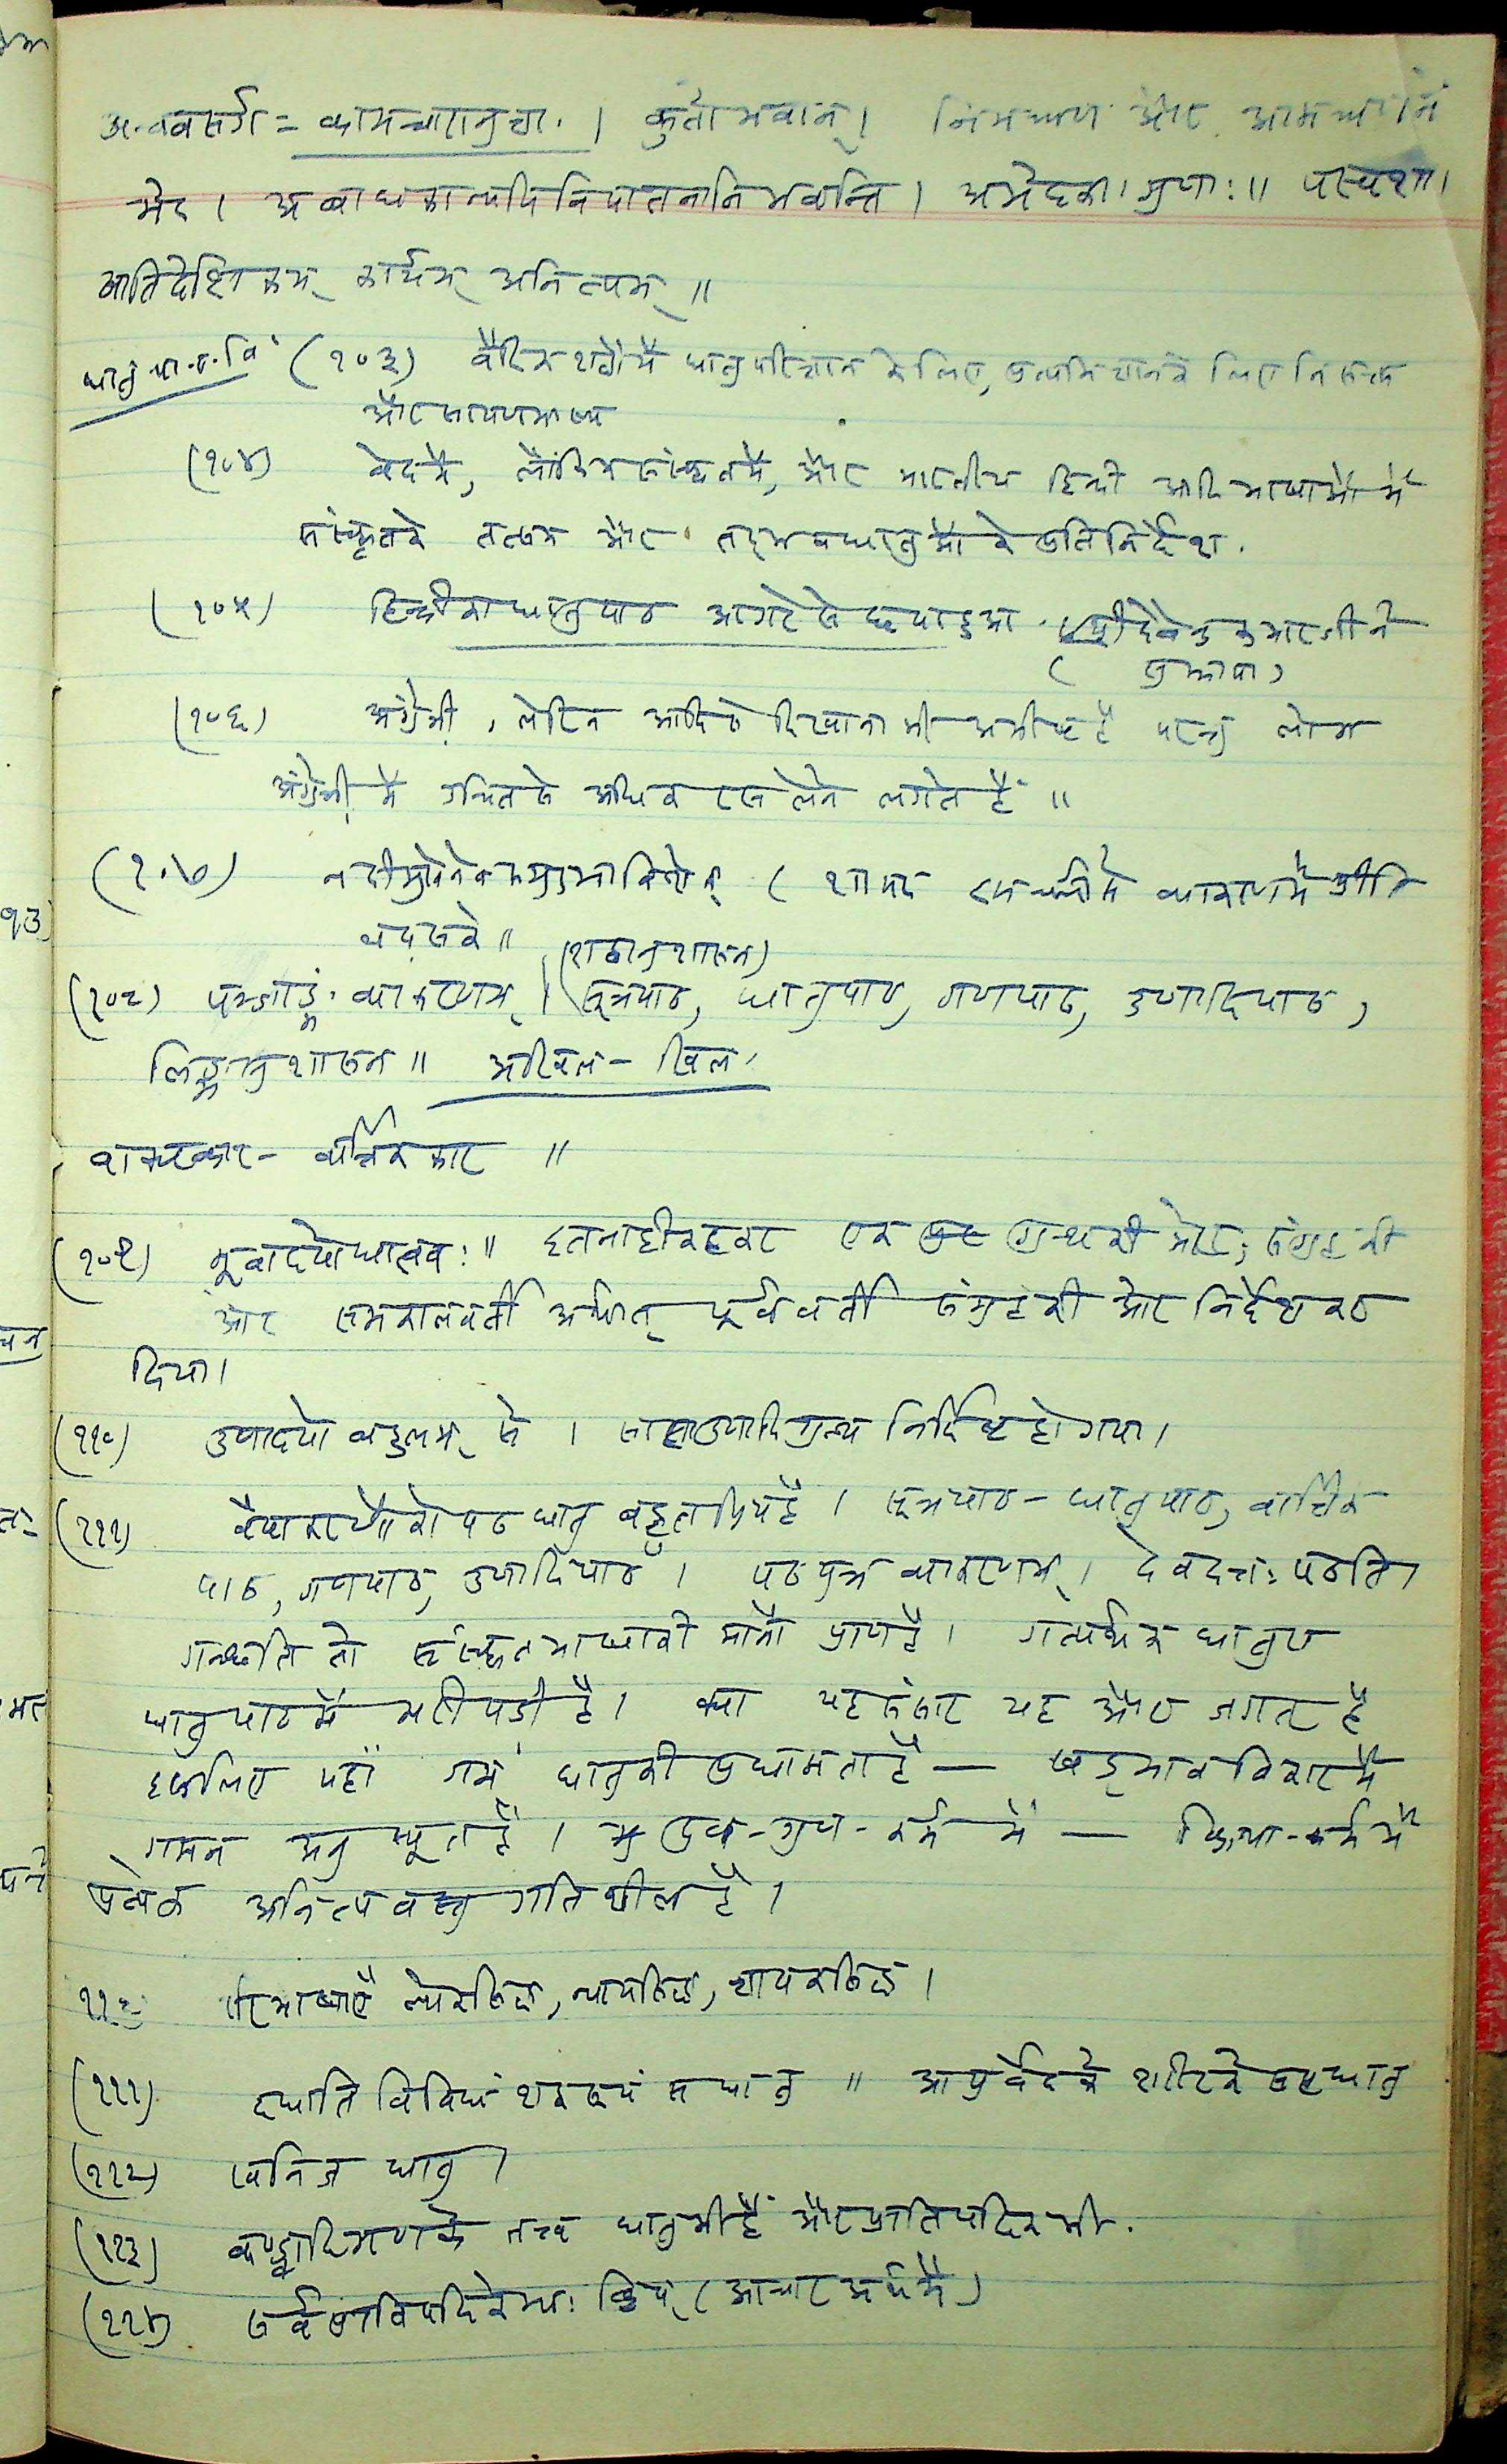 अन्ववसर्ग = कामचारानुज्ञा । कुर्ता भवान् । निमन्त्रण और आमन्त्रण में
भेद । अबाधकान्यपि निपातनानि भवन्ति । अभेदका गुणाः ॥ पस्पशा ।
आतिदेशिकम् कार्यम् अनित्यम् ॥
(१०३) वैदिक शब्दों में धातु परिज्ञान के लिए, के लिए निरुक्त
और सायणभाष्य
(१०४) वेद में, लौकिक संस्कृत में, और भारतीय हिन्दी आदि भाषाओं में
संस्कृत के तत्सम और तद्भव धातुओं के प्रति निर्देश.
(१०५) हिन्दी का धातुपाठ आगरे से छपा हुआ. श्री देवेन्द्र कुमार जी ने
( सुझाया )
(१०६) अंग्रेजी, लेटिन आदि से दिखाना भी अभीष्ट है परन्तु लोग
अंग्रेजी में उचित से अधिक रस लेने लगते हैं ॥
(१०७) ( शायद व्याकरण में प्रीति
बढ़ सके ॥
(शब्दानुशासन)
(१०८) पञ्चाङ्गं व्याकरणम् । सूत्रपाठ, धातुपाठ, गणपाठ, उणादिपाठ,
लिङ्गानुशासन ॥ अखिल - खिल
वाक्यकार - वार्त्तिककार ॥
(१०९) भूवादयो धातवः ॥ इतना ही कहकर एक ग्रन्थ की ओर, संग्रह की
ओर समकालवर्ती अर्थात् पूर्ववर्ती संग्रह की ओर निर्देश कर
दिया ।
(११०) उणादयो बहुलम् से । सारा उणादि ग्रन्थ निर्दिष्ट हो गया ।
(१११) वैयाकरणों को पठ धातु बहुत प्रिय है । सूत्रपाठ - धातुपाठ, वार्त्तिक
पाठ, गणपाठ, उणादिपाठ । पठ पुत्र व्याकरणम् । देवदत्तः पठति ।
गच्छति तो संस्कृत भाषा की मानो प्राण है । गत्यर्थक धातुए
धातुपाठ में भरी पड़ी है । क्या यह संसार यह और जगत् है
इसलिए यहाँ गम् धातु की प्रधानता है — षड्भावविकार में
गमन अनुस्यूत है । द्रव्य - गुण - कर्म में — क्रिया - कर्म में
प्रत्येक अनित्य वस्तु गतिशील है ।
११२ परिभाषाएँ लोकसिद्ध, न्यायसिद्ध, ज्ञापकसिद्ध ।
(१११) दधाति विविधं शब्दरूपं स धातु ॥ आयुर्वेद के शरीर के सप्त धातु
(११२) खनिज धातु ।
(११३) कण्ड्वादिगण के तत्त्व धातु भी हैं और प्रातिपदिक भी.
(११४) सर्वप्रातिपदिकेभ्यः क्विप् ( आचार अर्थ में )